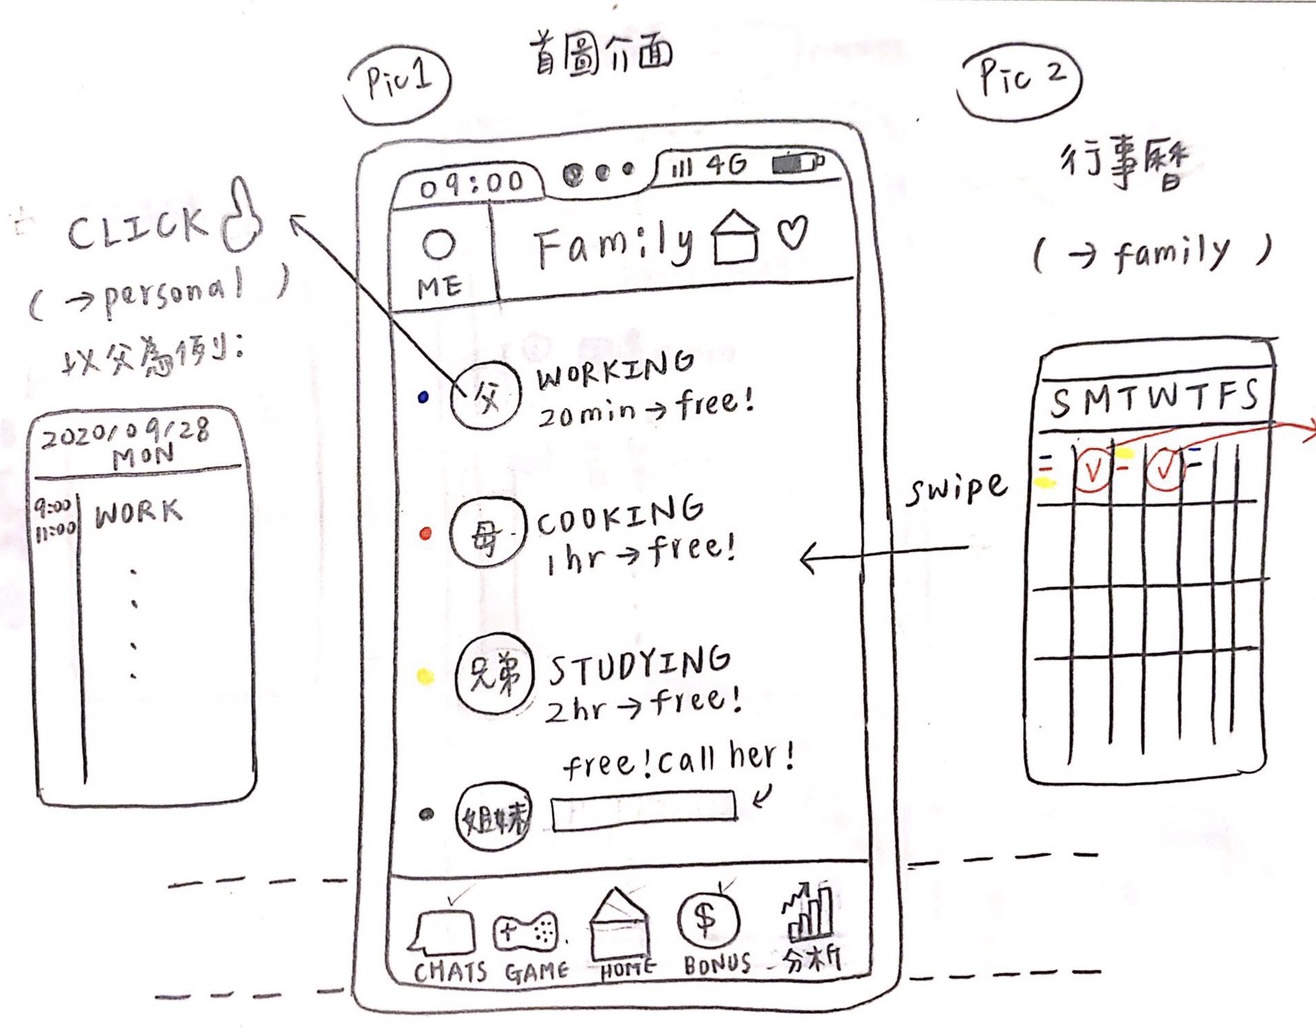 Pic 1
首圖介面
Pic 2
行事曆
( → family )
CLICK
( → personal )
以父為例:
2020/09/28
MON
9:00
11:00
WORK
09:00
4G
ME
Family
父
WORKING
20min → free!
母
COOKING
1hr → free!
兄弟
STUDYING
2hr → free!
free! call her!
姐妹
CHATS
GAME
HOME
$
BONUS
分析
swipe
S M T W T F S